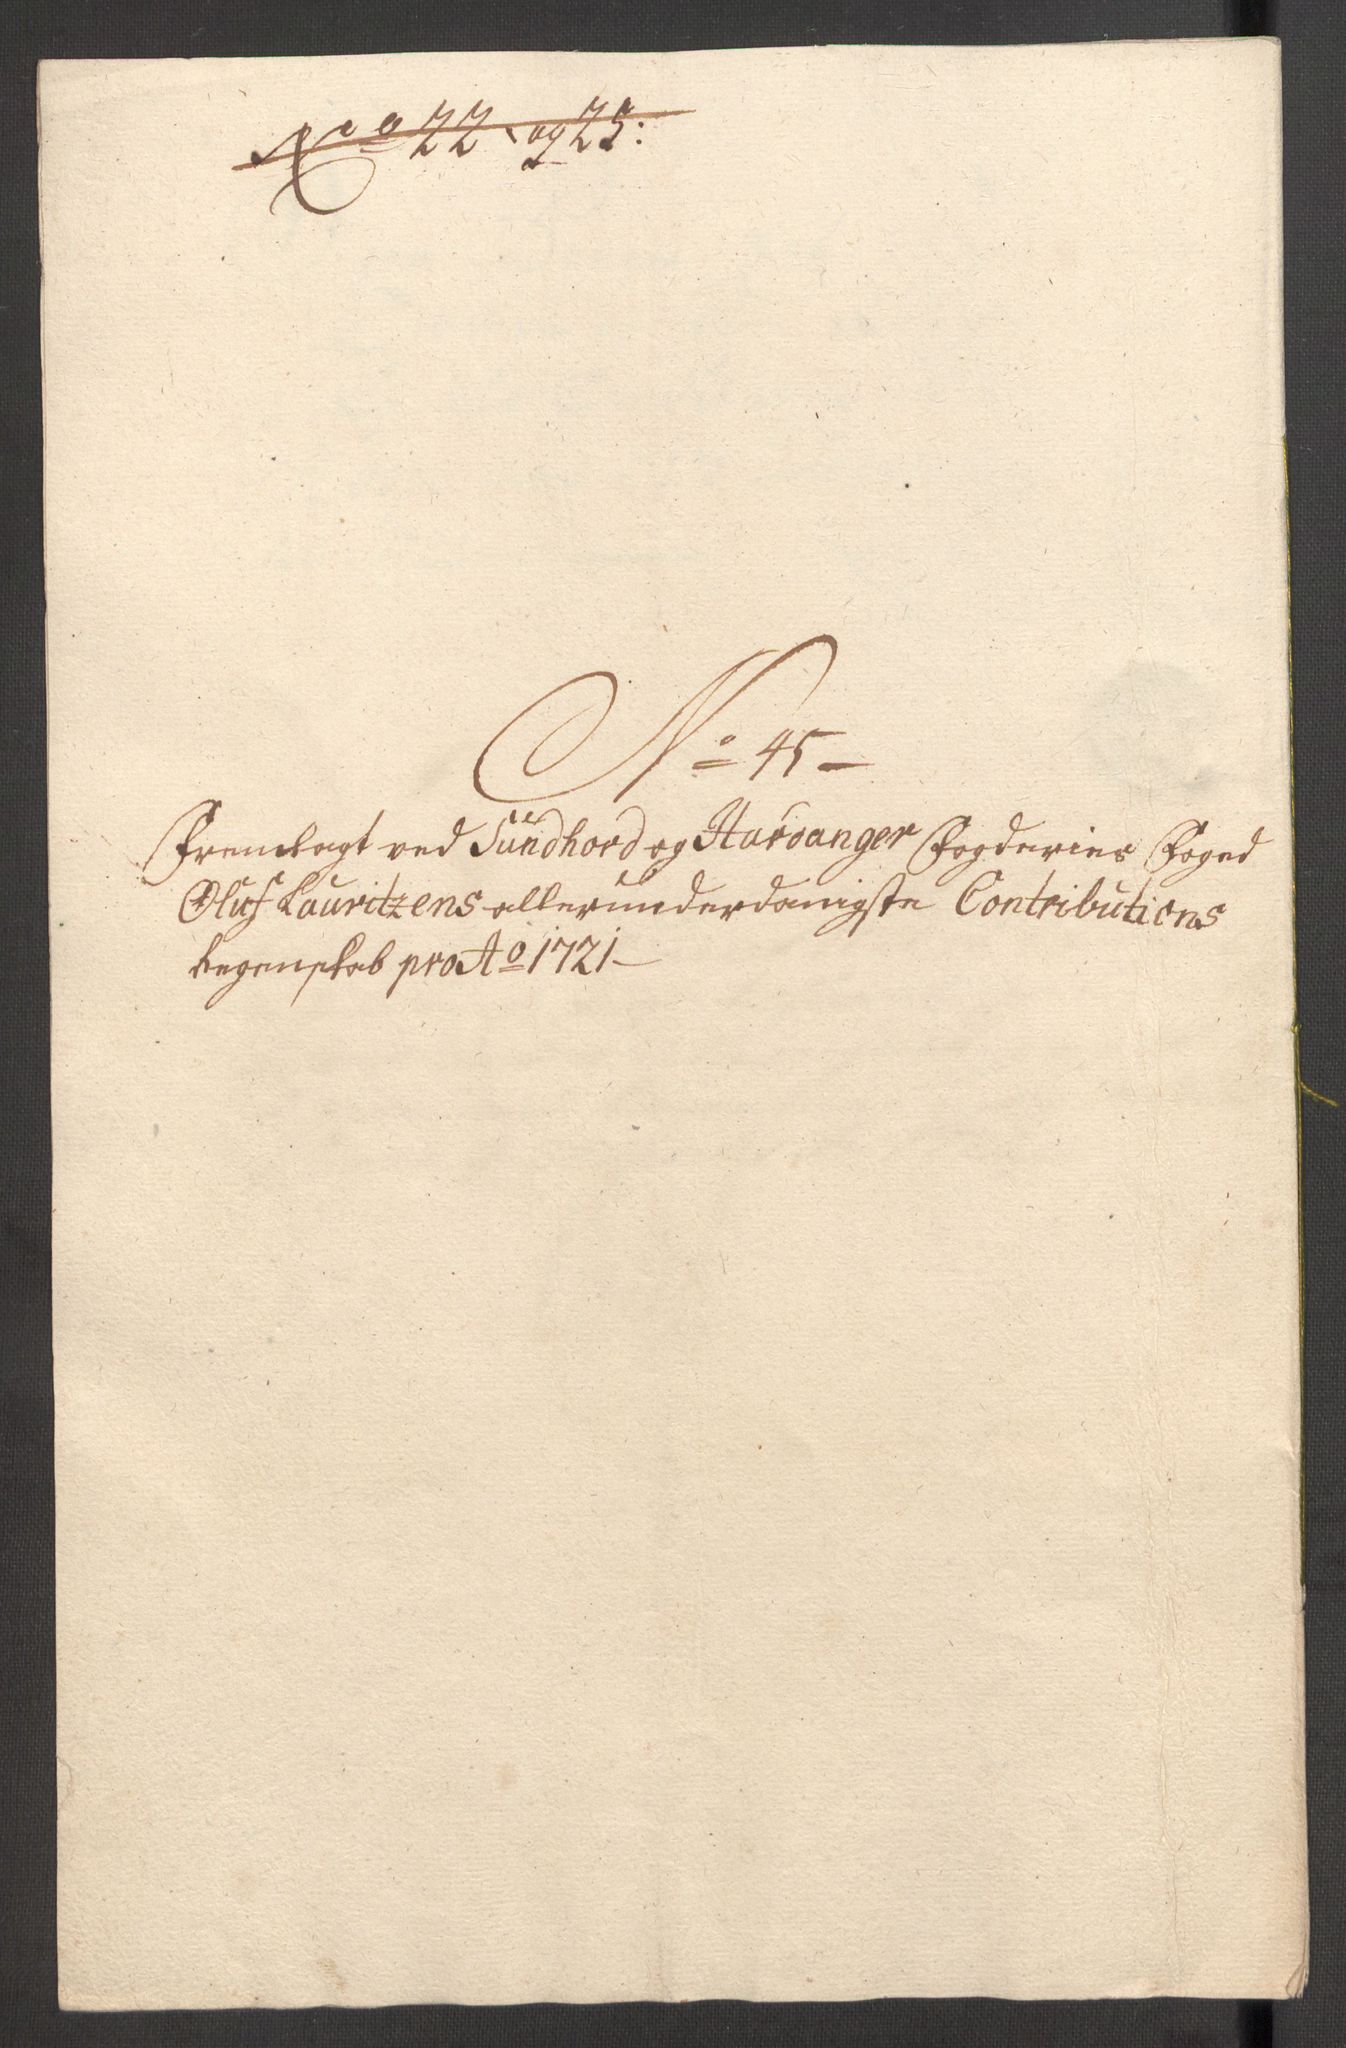 No 22 og 23:
No 45
Fremlagt ved Sundhord og Hardanger Fogderies Foged
Oluf Lauritzens allerunderdanigste Contributions
Regenskab pro Ao 1721